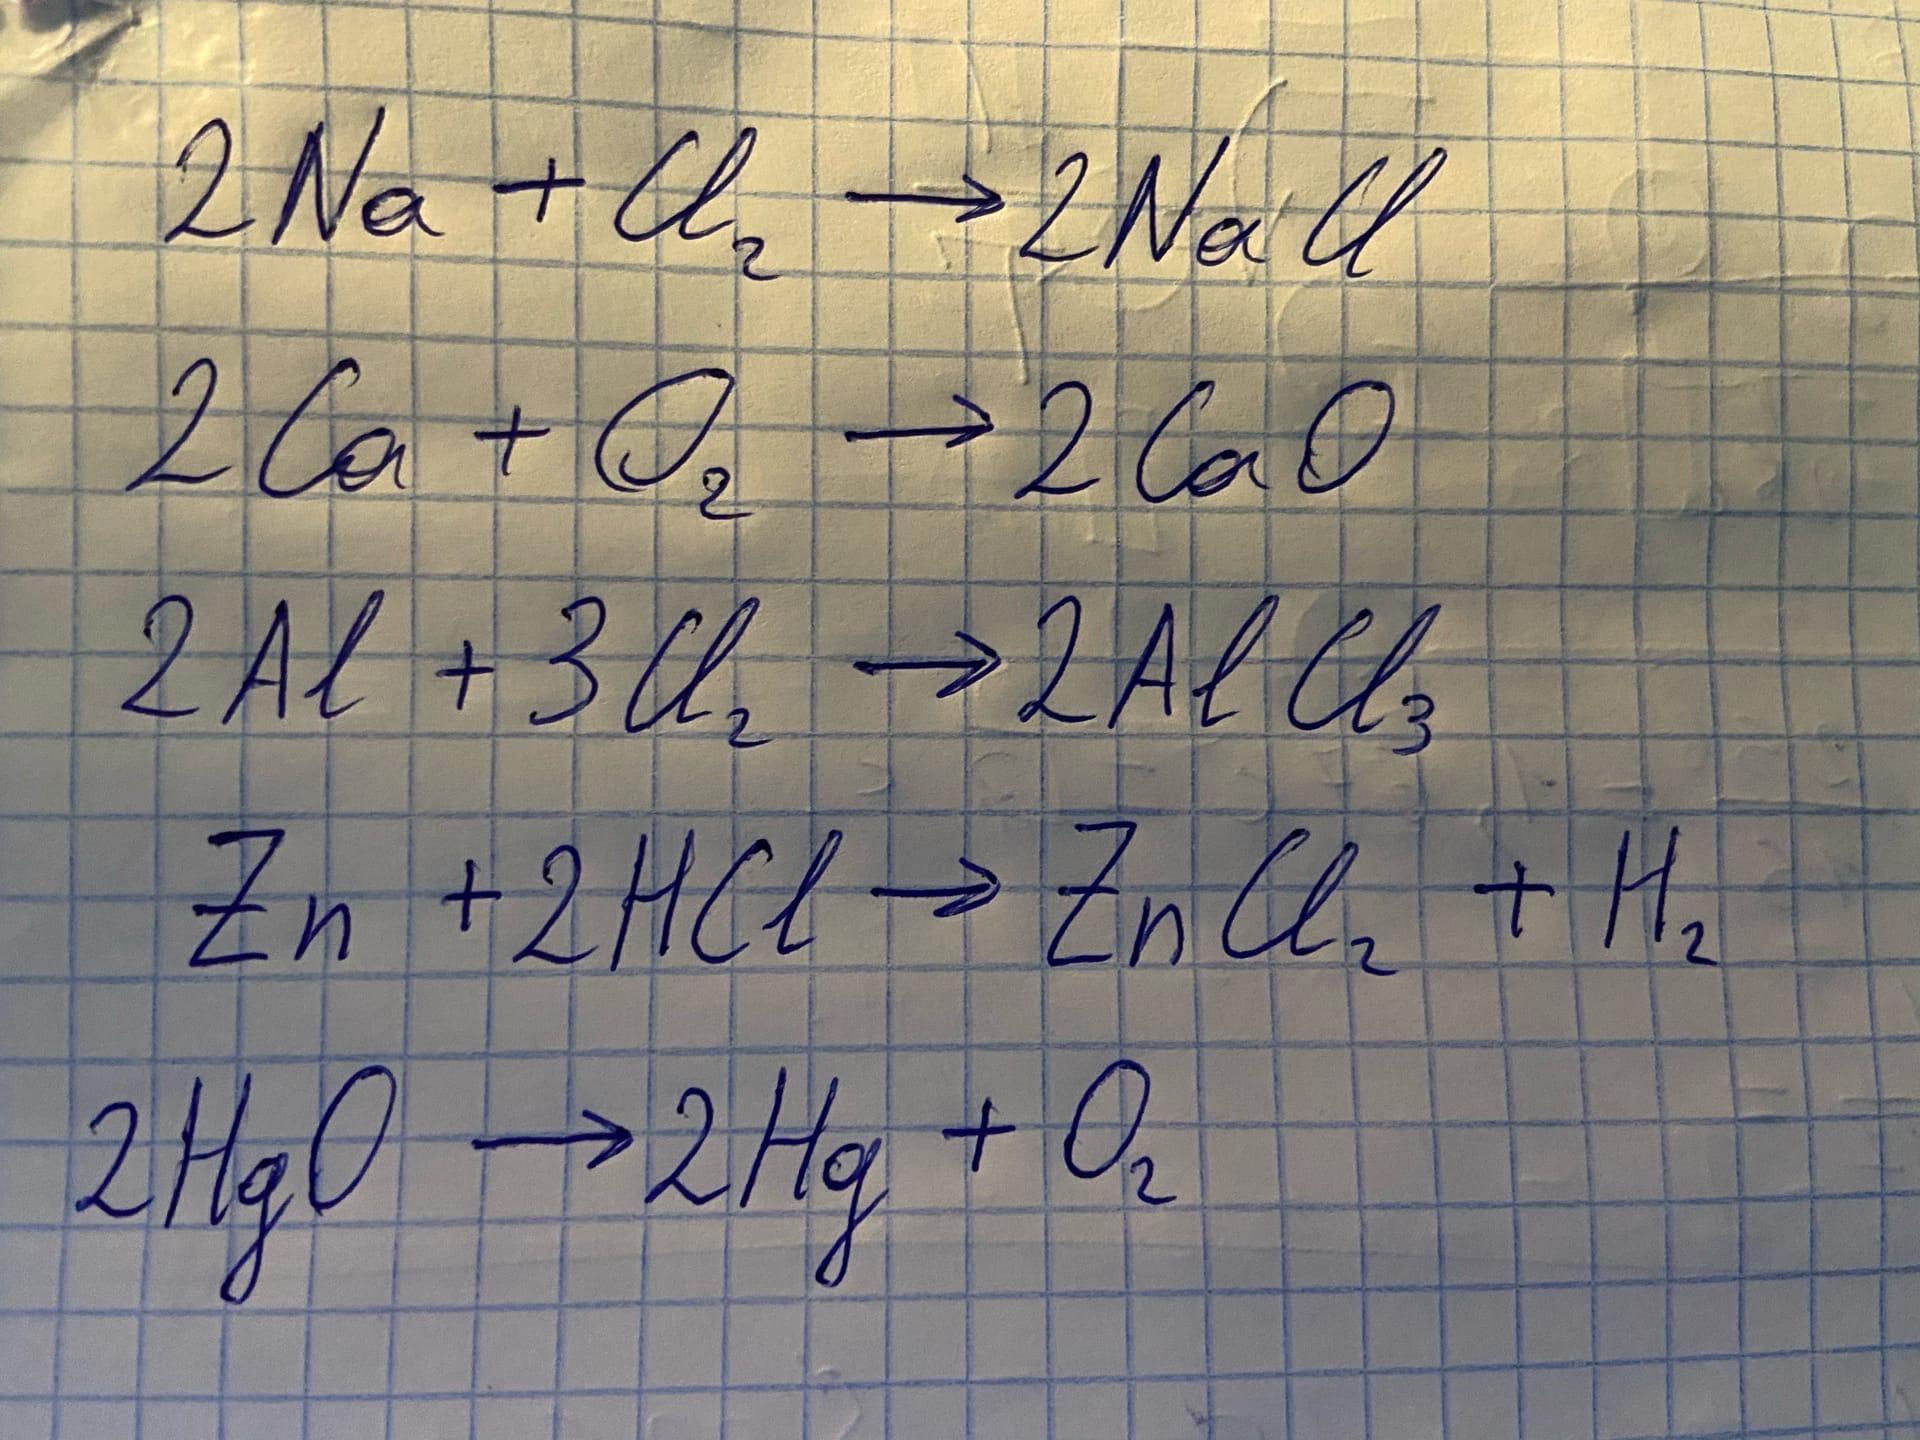 2Na + Cl₂ → 2NaCl
2Ca + O₂ → 2CaO
2Al + 3Cl₂ → 2AlCl₃
Zn + 2HCl → ZnCl₂ + H₂
2HgO → 2Hg + O₂